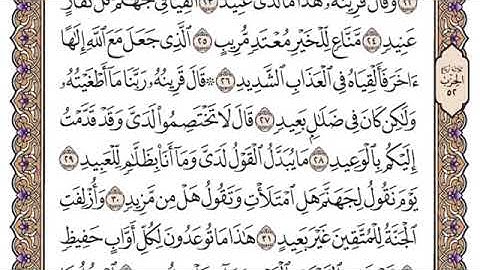 وَقَالَ قَرِينُهُۥ هَٰذَا مَا لَدَىَّ عَتِيدٌ ٢٣ أَلْقِيَا فِى جَهَنَّمَ كُلَّ كَفَّارٍ
عَنِيدٍ ٢٤ مَّنَّاعٍ لِّلْخَيْرِ مُعْتَدٍ مُّرِيبٍ ٢٥ ٱلَّذِى جَعَلَ مَعَ ٱللَّهِ إِلَٰهًا
ءَاخَرَ فَأَلْقِيَاهُ فِى ٱلْعَذَابِ ٱلشَّدِيدِ ٢٦ ۞ قَالَ قَرِينُهُۥ رَبَّنَا مَآ أَطْغَيْتُهُۥ
وَلَٰكِن كَانَ فِى ضَلَٰلٍۭ بَعِيدٍ ٢٧ قَالَ لَا تَخْتَصِمُوا۟ لَدَىَّ وَقَدْ قَدَّمْتُ
إِلَيْكُم بِٱلْوَعِيدِ ٢٨ مَا يُبَدَّلُ ٱلْقَوْلُ لَدَىَّ وَمَآ أَنَا۠ بِظَلَّٰمٍ لِّلْعَبِيدِ ٢٩
يَوْمَ نَقُولُ لِجَهَنَّمَ هَلِ ٱمْتَلَأْتِ وَتَقُولُ هَلْ مِن مَّزِيدٍ ٣٠ وَأُزْلِفَتِ
ٱلْجَنَّةُ لِلْمُتَّقِينَ غَيْرَ بَعِيدٍ ٣١ هَٰذَا مَا تُوعَدُونَ لِكُلِّ أَوَّابٍ حَفِيظٍ
الحزب
٥٢